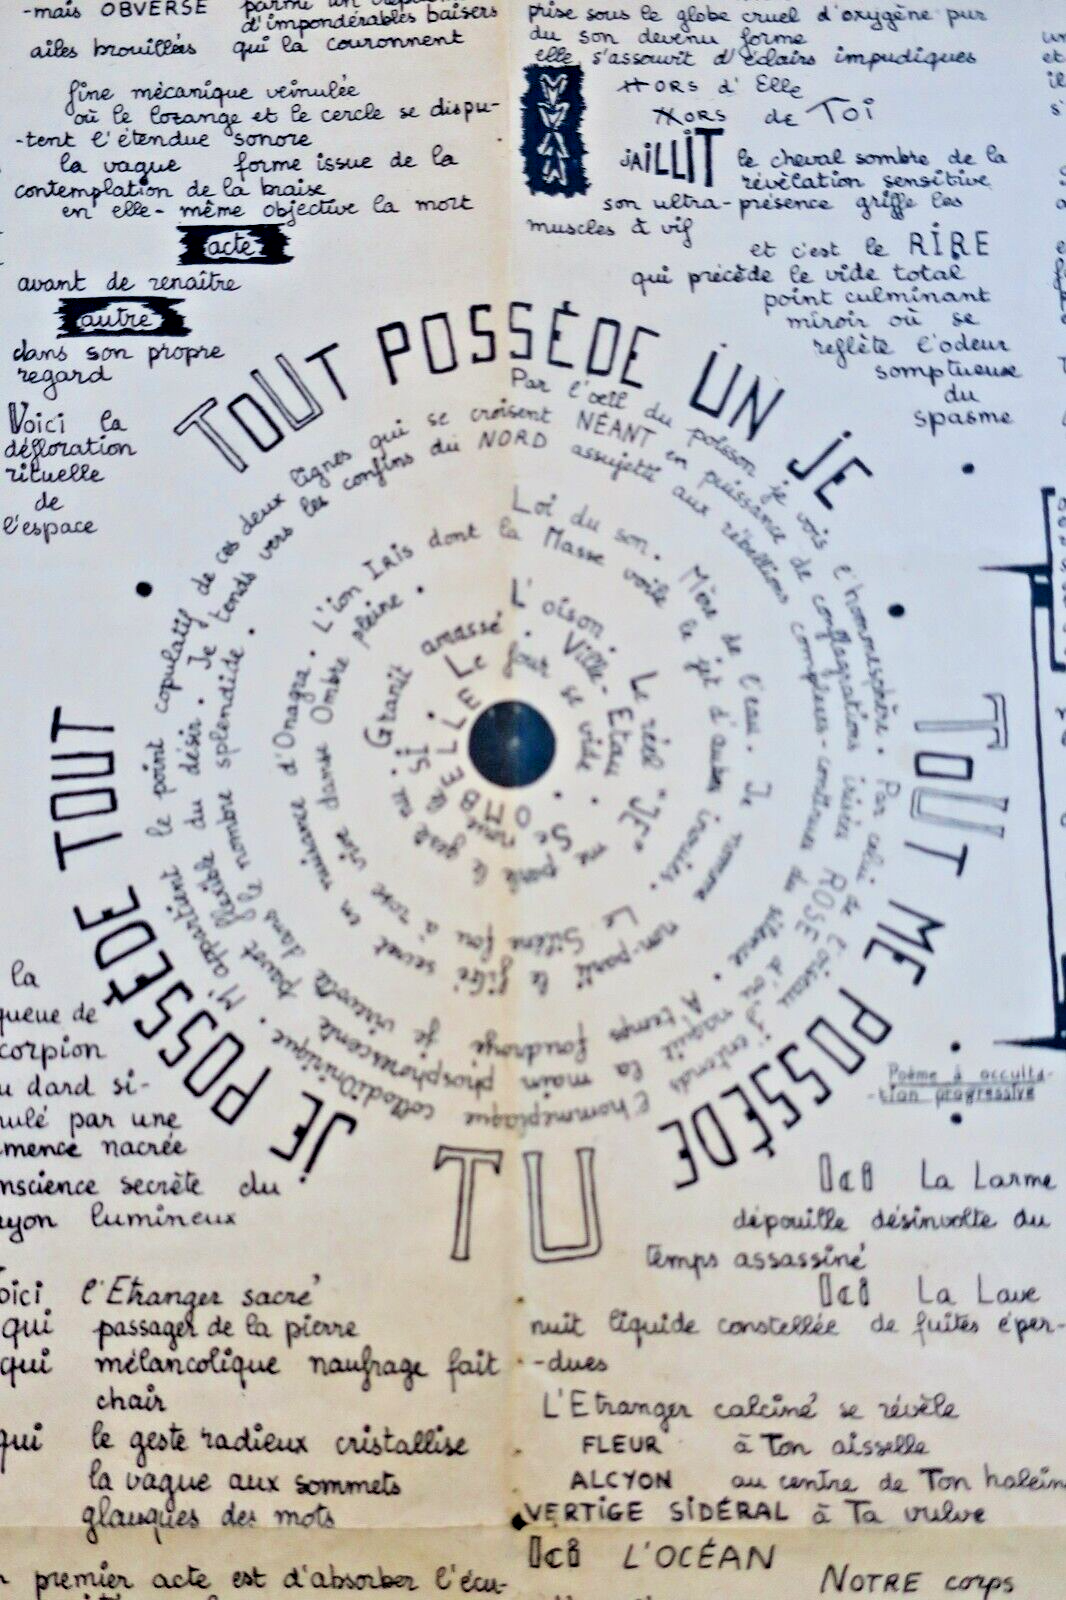 -mais OBVERSE parmi un
d'impondérables baisers
ailes brouillées qui la couronnent
fine mécanique veinulée
où le lozange et le cercle se dispu-
-tent l'étendue sonore
la vague forme issue de la
contemplation de la braise
en elle-même objective la mort
acte
avant de renaître
autre
dans son propre
regard
Voici la
défloration
rituelle
de
l'espace
prise sous le globe cruel d'oxygène pur
du son devenu forme
elle s'assouvit d'éclairs impudiques
HORS d'Elle
HORS de TOI
JAILLIT le cheval sombre de la
révélation sensitive
son ultra-présence griffe les
muscles à vif
et c'est le RIRE
qui précède le vide total
point culminant
miroir où se
reflète l'odeur
somptueuse
du
spasme
TOUT POSSÈDE UN JE
TOUT ME POSSÈDE
TU
JE POSSÈDE TOUT
Par l'œil du poisson je vois l'hommesphère. Par celui de l'oiseau j'entends l'homéplaque collodiOnirique. M'appartient le point copulatif de ces deux lignes qui se croisent NÉANT en puissance de conflagrations irisées ROSE d'où naquit la main phosphorescente
flexible du désir. Je tends vers les confins du NORD assujetti aux rébellions complexes-continues du silence. A temps foudroyé je virevolte pavot dans le nombre splendide.
Loi du son. Mère de l'eau. Je nomme non-parti le filtre secret en nuisance d'Onagra. L'ion IRIS dont la Masse voile le jet d'aubes inouïes.
Le Silène fou à rose vive danse Ombre pleine.
L'oison. Le réel "JE" me parle
Granit amassé. Ville-Etau
Le jour se vide. Se
OMBELLE
Poème à occulta-
-tion progressive
la
queue de
corpion
u dard si-
mulé par une
mence nacrée
nscience secrète du
ayon lumineux
Voici l'Etranger sacré
qui passager de la pierre
qui mélancolique naufrage fait
chair
qui le geste radieux cristallise
la vague aux sommets
glauques des mots
premier acte est d'absorber l'écu-
Ici La Larme
dépouille désinvolte du
temps assassiné
Ici La Lave
nuit liquide constellée de fuites éper-
-dues
L'Etranger calciné se révèle
FLEUR à Ton aisselle
ALCYON au centre de Ton halein
VERTIGE SIDÉRAL à Ta vulve
Ici L'OCÉAN
NOTRE corps